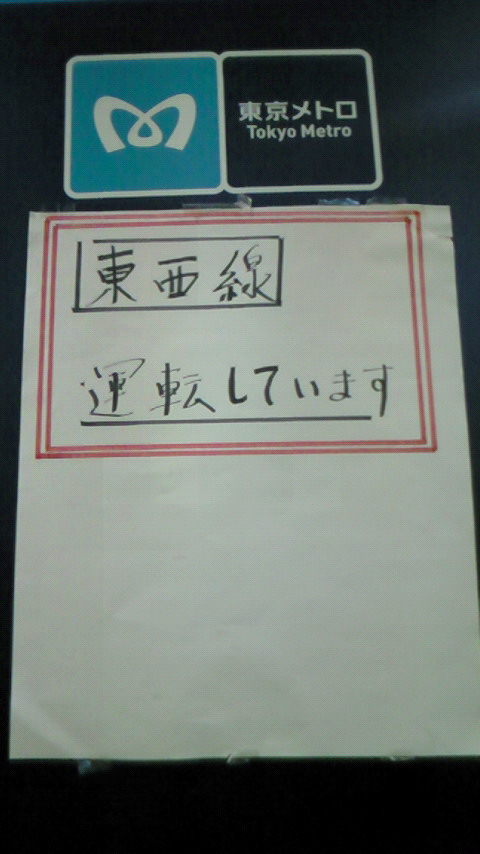 東京メトロ
Tokyo Metro
東西線
運転しています